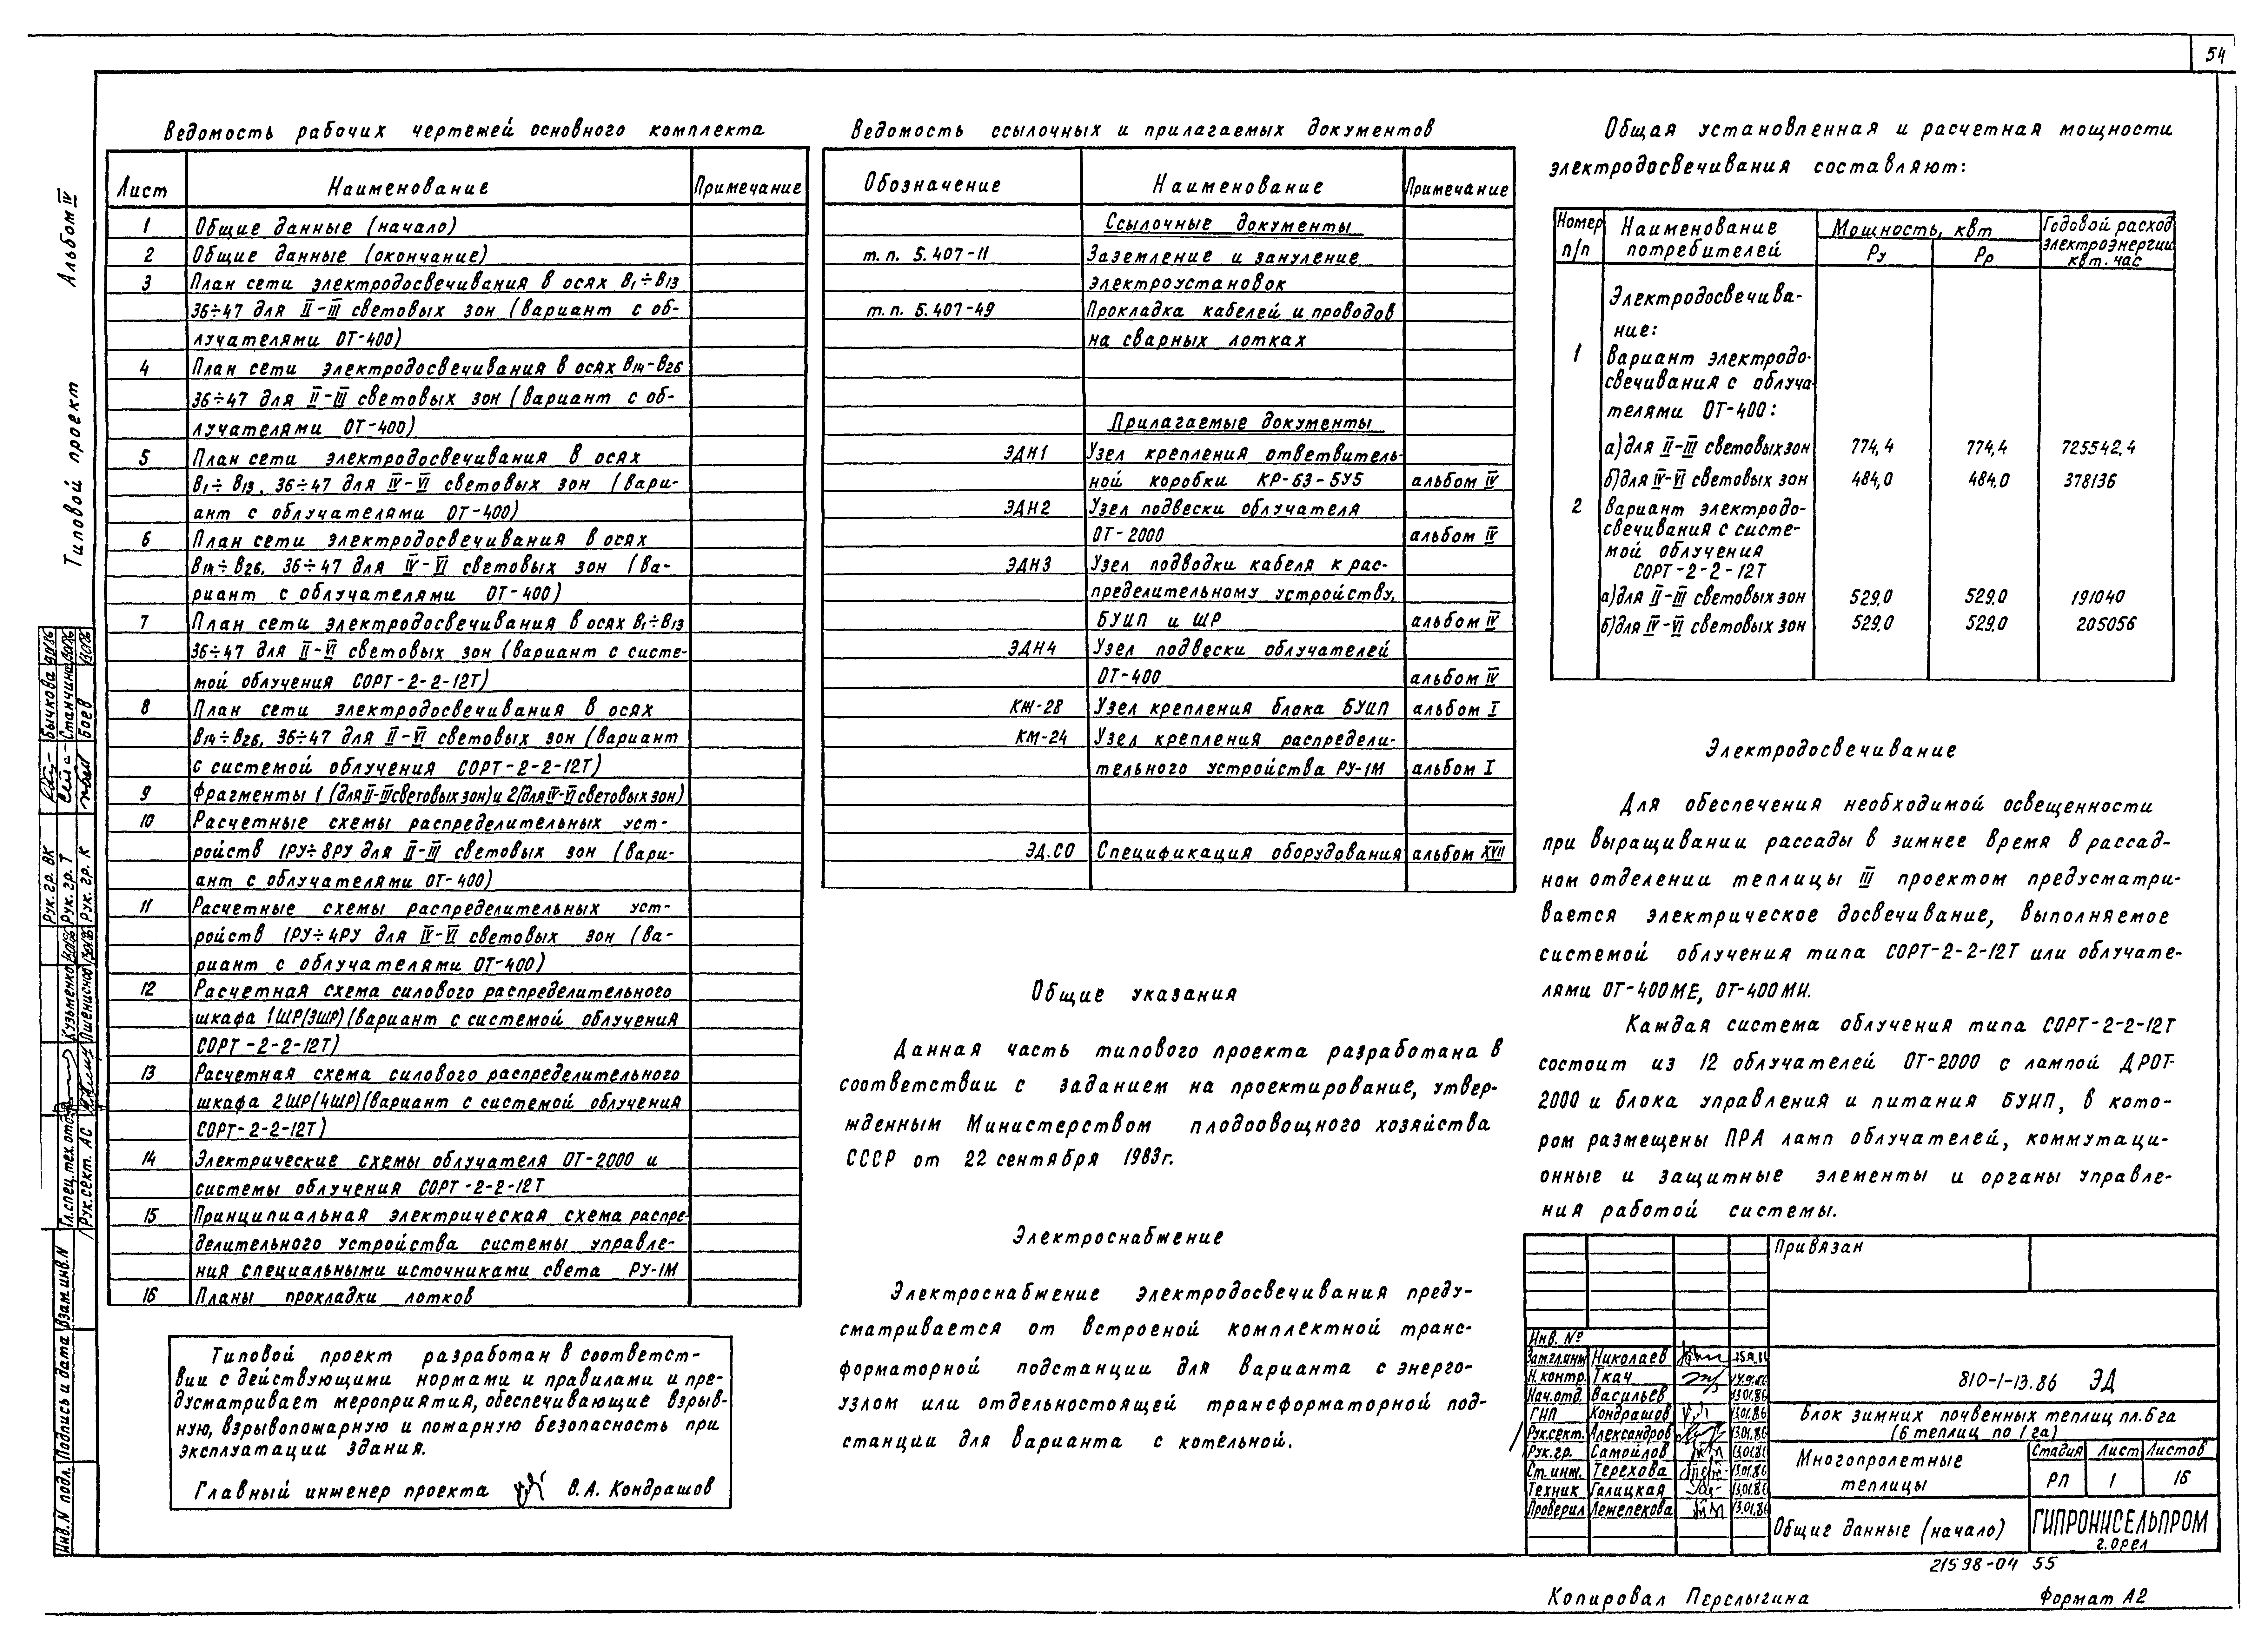 54
Альбом IV
Типовой проект
Ведомость рабочих чертежей основного комплекта
Лист Наименование Примечание
1 Общие данные (начало)
2 Общие данные (окончание)
3 План сети электродосвечивания в осях В1÷В13
36÷47 для II-III световых зон (вариант с об-
лучателями ОТ-400)
4 План сети электродосвечивания в осях В14-В26
36÷47 для II-III световых зон (вариант с об-
лучателями ОТ-400)
5 План сети электродосвечивания в осях
В1÷В13, 36÷47 для IV-VI световых зон (вари-
ант с облучателями ОТ-400)
6 План сети электродосвечивания в осях
В14÷В26, 36÷47 для IV-VI световых зон (ва-
риант с облучателями ОТ-400)
7 План сети электродосвечивания в осях В1÷В13
36÷47 для II-VI световых зон (вариант с систе-
мой облучения СОРТ-2-2-12Т)
8 План сети электродосвечивания в осях
В14÷В26, 36÷47 для II-VI световых зон (вариант
с системой облучения СОРТ-2-2-12Т)
9 Фрагменты 1 (для II-III световых зон) и 2 (для IV-VI световых зон)
10 Расчетные схемы распределительных уст-
ройств 1РУ÷8РУ для II-III световых зон (вари-
ант с облучателями ОТ-400)
11 Расчетные схемы распределительных уст-
ройств 1РУ÷4РУ для IV-VI световых зон (ва-
риант с облучателями ОТ-400)
12 Расчетная схема силового распределительного
шкафа 1ШР(3ШР) (вариант с системой облучения
СОРТ-2-2-12Т)
13 Расчетная схема силового распределительного
шкафа 2ШР(4ШР) (вариант с системой облучения
СОРТ-2-2-12Т)
14 Электрические схемы облучателя ОТ-2000 и
системы облучения СОРТ-2-2-12Т
15 Принципиальная электрическая схема распре-
делительного устройства системы управле-
ния специальными источниками света РУ-1М
16 Планы прокладки лотков
Типовой проект разработан в соответст-
вии с действующими нормами и правилами и пре-
дусматривает мероприятия, обеспечивающие взрыв-
ную, взрывопожарную и пожарную безопасность при
эксплуатации здания.
Главный инженер проекта В.А. Кондрашов
Ведомость ссылочных и прилагаемых документов
Обозначение Наименование Примечание
Ссылочные документы
т.п. 5.407-11 Заземление и зануление
электроустановок
т.п. 5.407-49 Прокладка кабелей и проводов
на сварных лотках
Прилагаемые документы
ЭДН1 Узел крепления ответвитель-
ной коробки КР-63-5У5 альбом IV
ЭДН2 Узел подвески облучателя
ОТ-2000 альбом IV
ЭДН3 Узел подводки кабеля к рас-
пределительному устройству,
БУИП и ШР альбом IV
ЭДН4 Узел подвески облучателей
ОТ-400 альбом IV
КЖ-28 Узел крепления блока БУИП альбом I
КМ-24 Узел крепления распредели-
тельного устройства РУ-1М альбом I
ЭД.СО Спецификация оборудования альбом XVII
Общие указания
Данная часть типового проекта разработана в
соответствии с заданием на проектирование, утвер-
жденным Министерством плодоовощного хозяйства
СССР от 22 сентября 1983г.
Электроснабжение
Электроснабжение электродосвечивания преду-
сматривается от встроеной комплектной транс-
форматорной подстанции для варианта с энерго-
узлом или отдельностоящей трансформаторной под-
станции для варианта с котельной.
Общая установленная и расчетная мощности
электродосвечивания составляют:
Номер п/п Наименование потребителей Мощность, квт Ру Рр Годовой расход электроэнергии квт. час
Электродосвечива-
ние:
1 Вариант электродо-
свечивания с облуча-
телями ОТ-400:
а) для II-III световых зон 774,4 774,4 725542,4
б) для IV-VI световых зон 484,0 484,0 378136
2 Вариант электродо-
свечивания с систе-
мой облучения
СОРТ-2-2-12Т
а) для II-III световых зон 529,0 529,0 191040
б) для IV-VI световых зон 529,0 529,0 205056
Электродосвечивание
Для обеспечения необходимой освещенности
при выращивании рассады в зимнее время в рассад-
ном отделении теплицы III проектом предусматри-
вается электрическое досвечивание, выполняемое
системой облучения типа СОРТ-2-2-12Т или облучате-
лями ОТ-400МЕ, ОТ-400МИ.
Каждая система облучения типа СОРТ-2-2-12Т
состоит из 12 облучателей ОТ-2000 с лампой ДРОТ-
2000 и блока управления и питания БУИП, в кото-
ром размещены ПРА ламп облучателей, коммутаци-
онные и защитные элементы и органы управле-
ния работой системы.
Привязан
Инв. №
Зам.гл.инж Николаев
Н. контр. Ткач
Нач. отд. Васильев 13.01.86
ГИП Кондрашов 13.01.86
Рук.сект. Александров 13.01.86
Рук. гр. Самойлов 13.01.86
Ст. инж. Терехова 13.01.86
Техник Галицкая 13.01.86
Проверил Лежепекова 13.01.86
810-1-13.86 ЭД
Блок зимних почвенных теплиц пл. 6 га
(6 теплиц по 1 га)
Многопролетные
теплицы
Стадия Лист Листов
РП 1 16
Общие данные (начало)
ГИПРОНИСЕЛЬПРОМ
г. Орел
21598-04 55
Копировал Перелыгина Формат А2
Рук. гр. ВК Бычкова
Рук. гр. Т Станчина
Рук. гр. К Боев
Гл. спец. тех. отд. Кузьменко
Рук. сект. АС Пшениснов
Инв. N подл. Подпись и дата Взам. инв. N